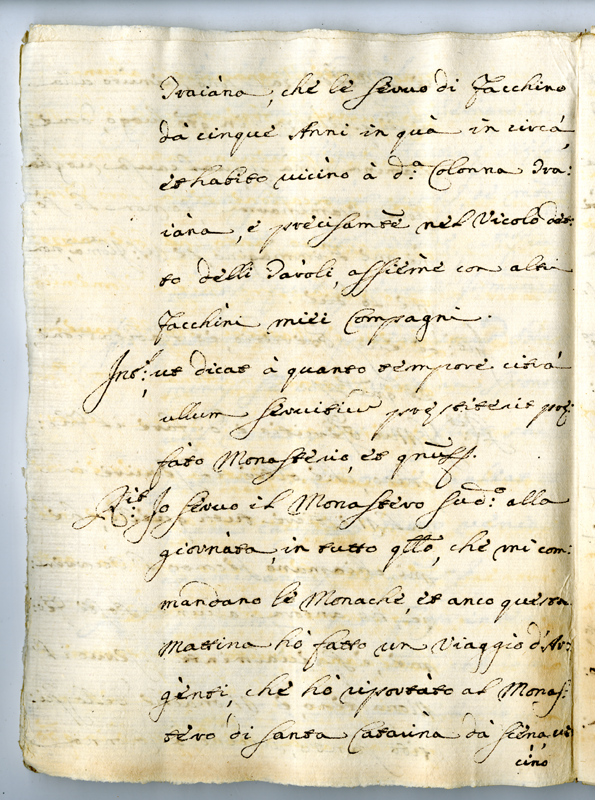 Traiána, che le seruo di Facchino
dà cinque Anni in quà in circa,
et habito uicino à d.ª Colonna Tra:
iána, e precisamte nel Vicolo det:
to delli Tauoli, assieme con altri
Facchini miei Compagni.
Int.s ut dicat à quanto tempore citrá
ullum seruitiu prestiterit prę:
fato Monasterio, et
R.it Io seruo il Monastero sud.o alla
giornáta, in tutto qllo, che mi com:
mandano le Monache, et anco questa
Mattina hò fatto un Viaggio d'Ar:
genti, che hò riportáto al Monas:
tero di Santa Catarina dà Siena ui
cino